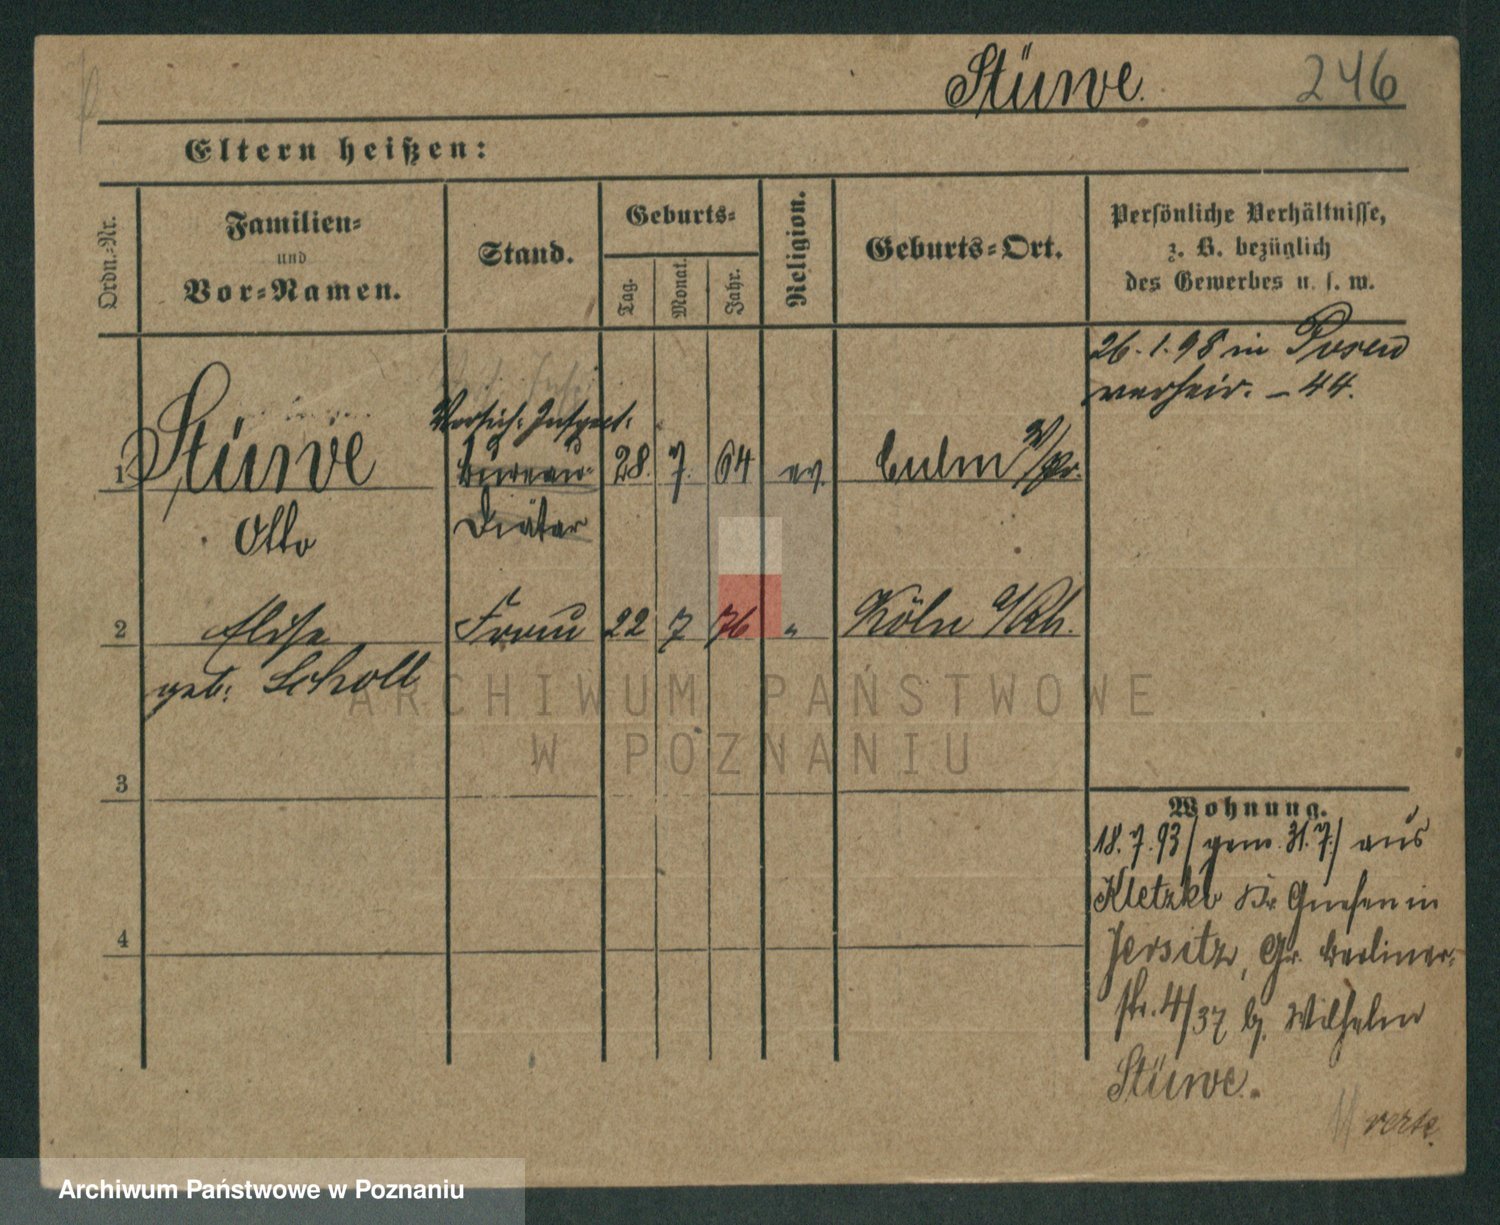 Stüwe.
246
Eltern heißen:
Ordn.-Nr.
Familien-
und
Vor-Namen.
Stand.
Geburts-
Tag.
Monat.
Jahr.
Religion.
Geburts-Ort.
Persönliche Verhältnisse,
z. B. bezüglich
des Gewerbes u. s. w.
26. 1. 98 in Posen
verheir. - 44.
Versich. Inspect.
1 Stüwe Bureau- 28. 7. 64 ev. Culm W/Pr.
Otto Diätar
2 Elise Frau 22 7 76 " Köln a/Rh.
geb. Scholl
ARCHIWUM PAŃSTWOWE
W POZNANIU
3
4
Wohnung.
18. 7. 93 / gem. 31. 7. / aus
Kletzko Kr Gnesen in
Jersitz, Gr. Berliner-
str. 4/37 b. Wilhelm
Stüwe.
verte.
Archiwum Państwowe w Poznaniu